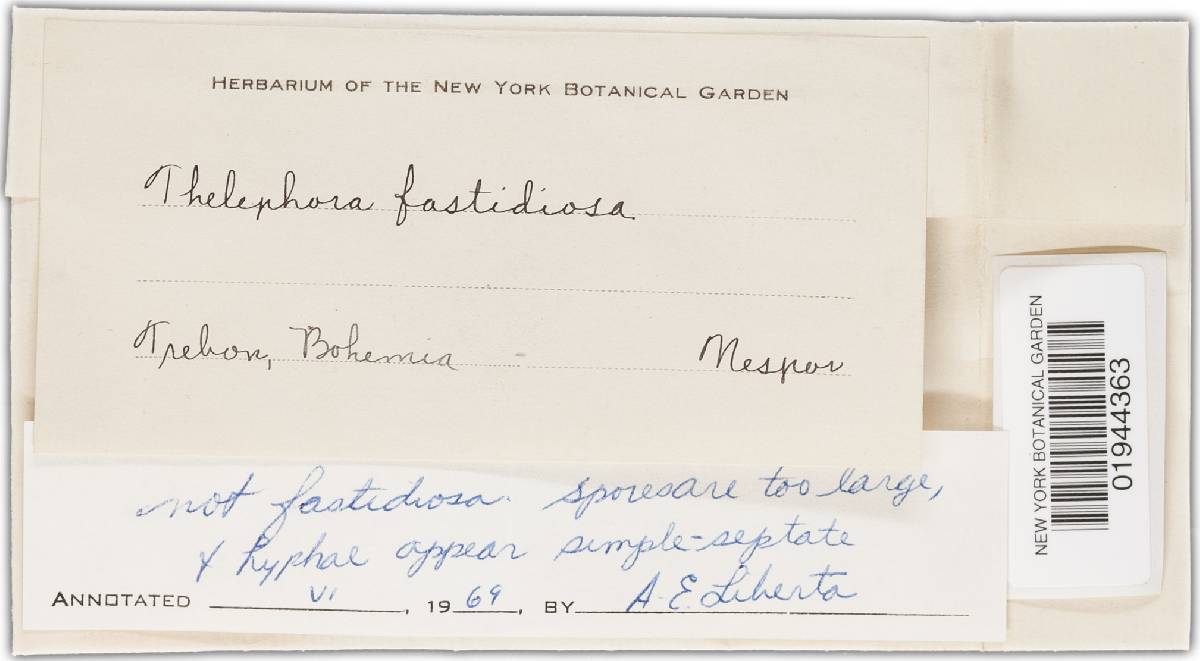 HERBARIUM OF THE NEW YORK BOTANICAL GARDEN
Thelephora fastidiosa
Trebon, Bohemia Nespor
not fastidiosa. Spores are too large,
& hyphae appear simple-septate
ANNOTATED VI, 1969, BY A.E. Liberta
NEW YORK BOTANICAL GARDEN
01944363